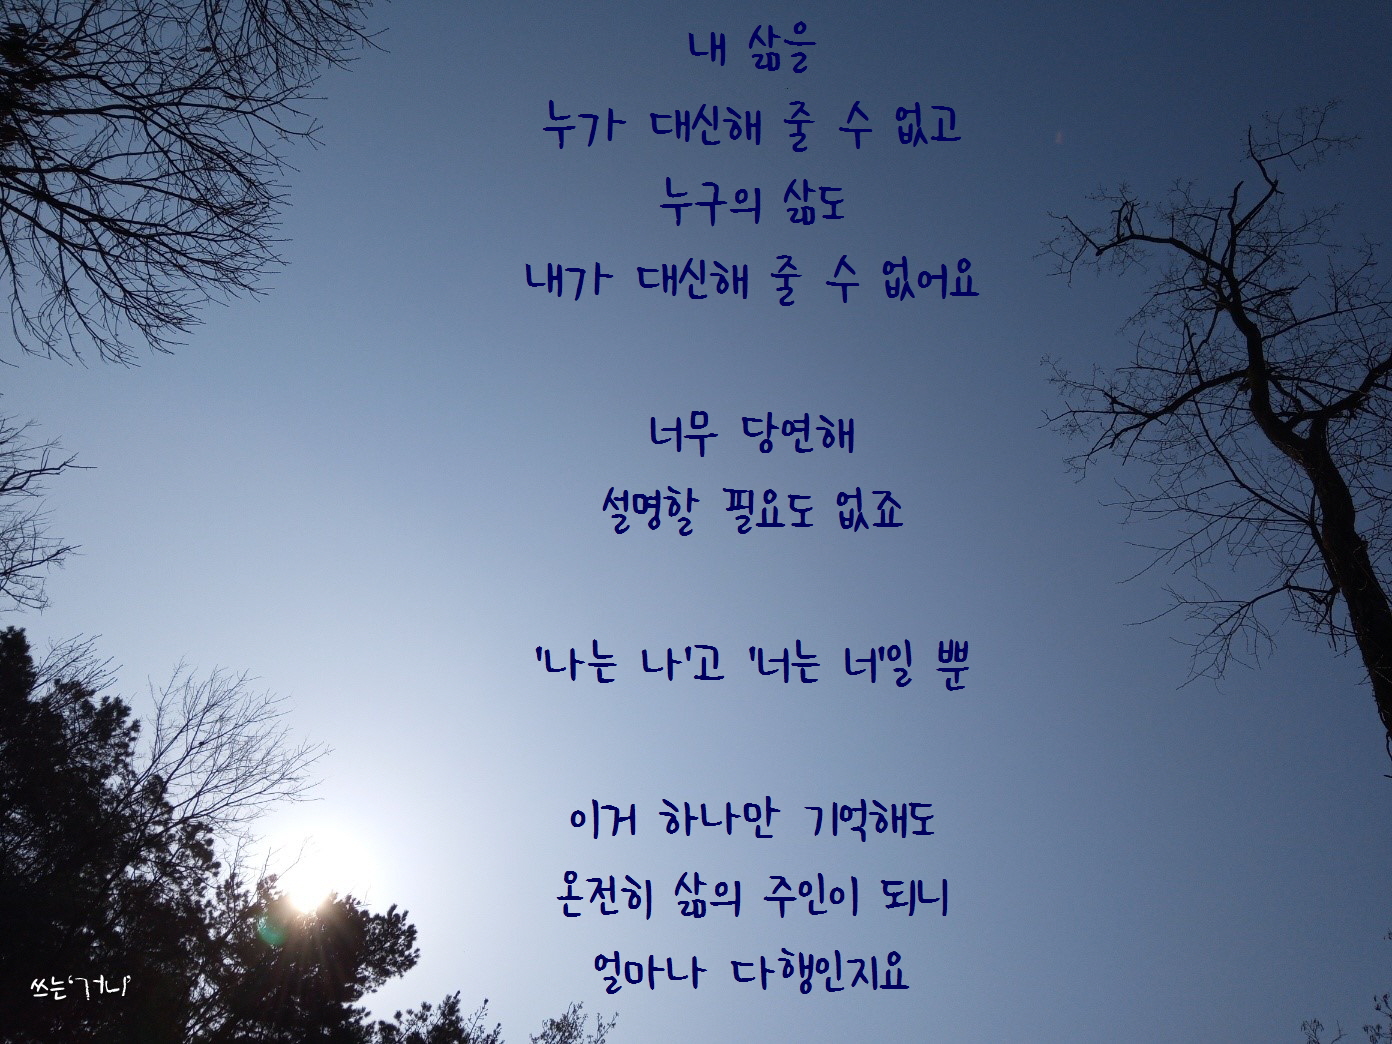 내 삶을
누가 대신해 줄 수 없고
누구의 삶도
내가 대신해 줄 수 없어요
너무 당연해
설명할 필요도 없죠
'나는 나'고 '너는 너'일 뿐
이거 하나만 기억해도
온전히 삶의 주인이 되니
얼마나 다행인지요
쓰는'거니'